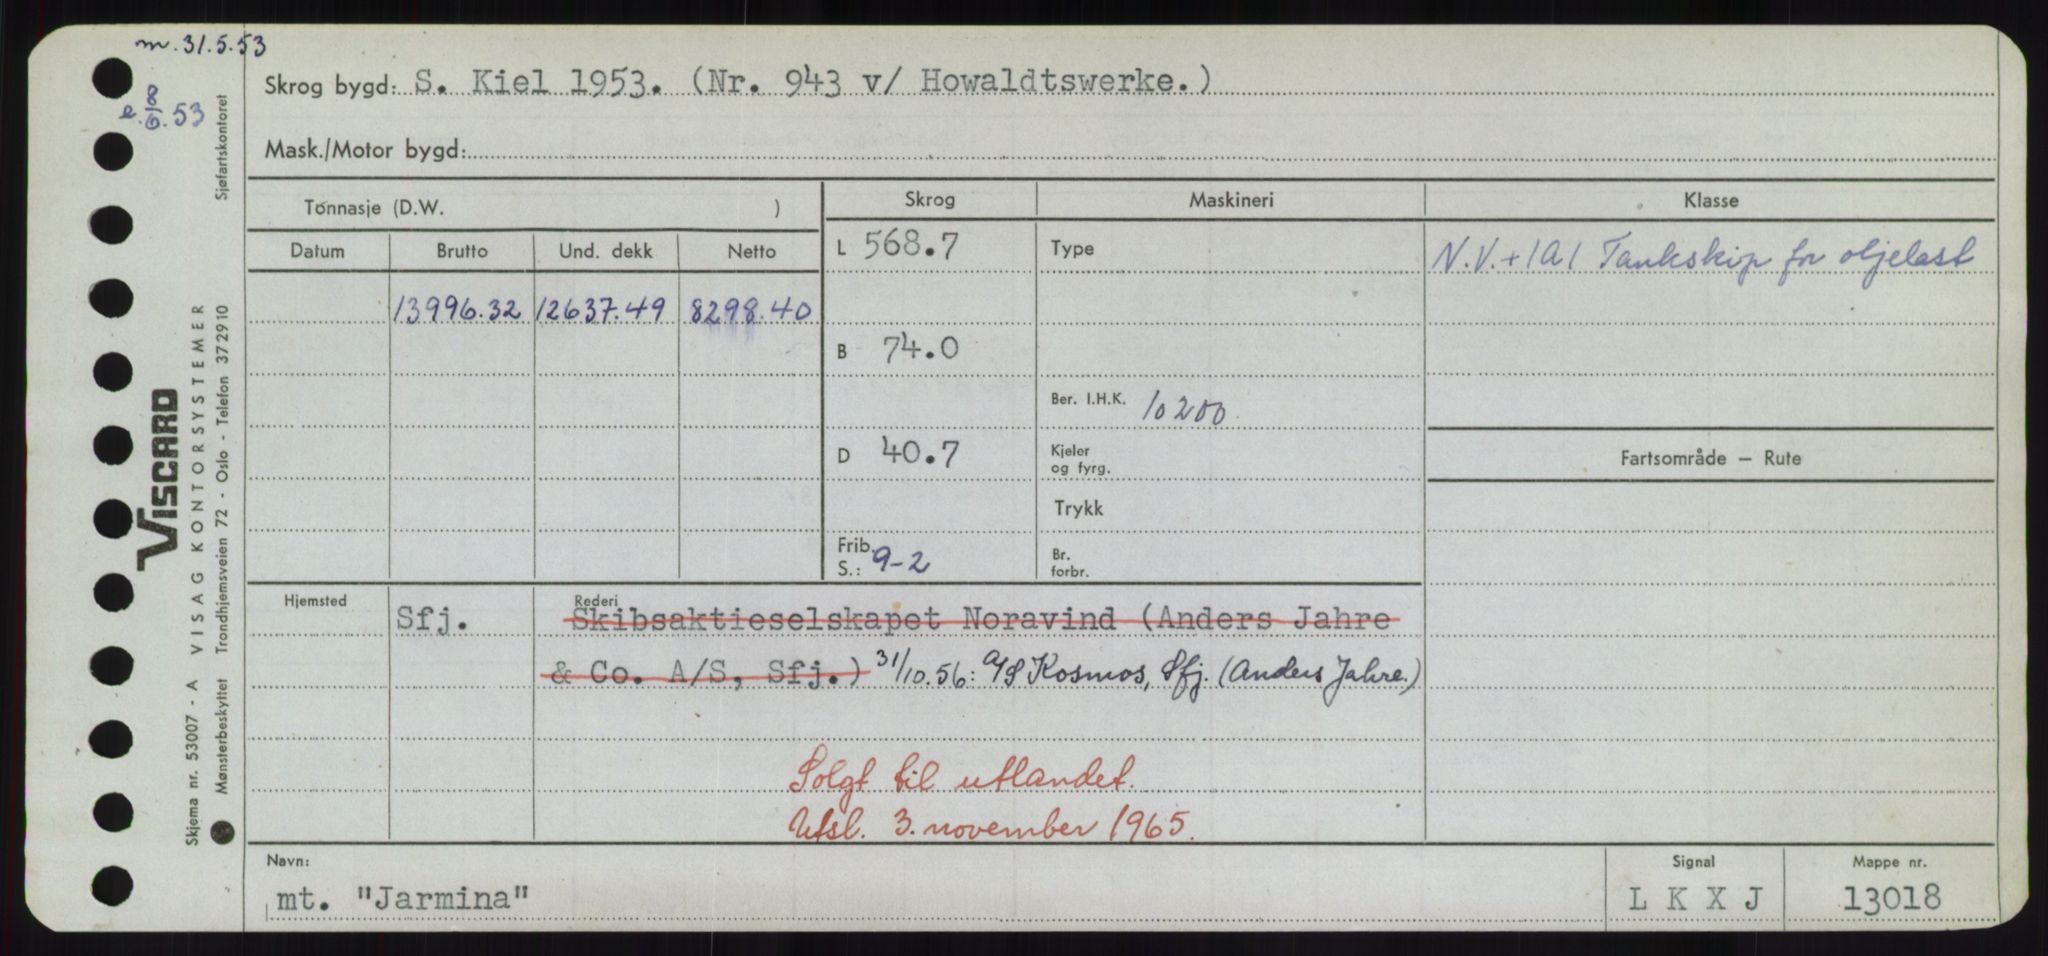 m. 31.5.53
e. 8/6.53
Skrog bygd: S. Kiel 1953. (Nr. 943 v/ Howaldtswerke.)
Mask./Motor bygd:
Sjøfartskontoret
Tonnasje (D.W. )
Skrog
Maskineri
Klasse
Datum Brutto Und. dekk Netto
L 568.7
Type
N.V.+1A1 Tankskip for oljelast
13996.32 12637.49 8298.40
B 74.0
Ber. I.H.K. 10200
D 40.7
Kjeler
og fyrg.
Fartsområde – Rute
Trykk
Frib.
S.: 9-2
Br.
forbr.
Hjemsted
Sfj.
Rederi
Skibsaktieselskapet Noravind (Anders Jahre
& Co. A/S, Sfj.) 31/10.56: A/S Kosmos, Sfj. (Anders Jahre.)
Solgt til utlandet.
Utsl. 3. november 1965.
Navn:
mt. "Jarmina"
Signal
L K X J
Mappe nr.
13018
VISCARD
VISAG KONTORSYSTEMER
Trondhjemsveien 72 - Oslo - Telefon 372910
Skjema nr. 53007 - A
Mønsterbeskyttet